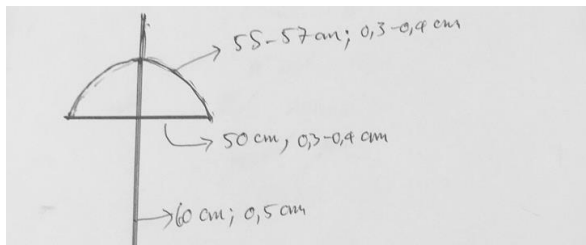 55-57cm; 0,3-0,4 cm
50 cm, 0,3-0,4 cm
60 cm; 0,5 cm